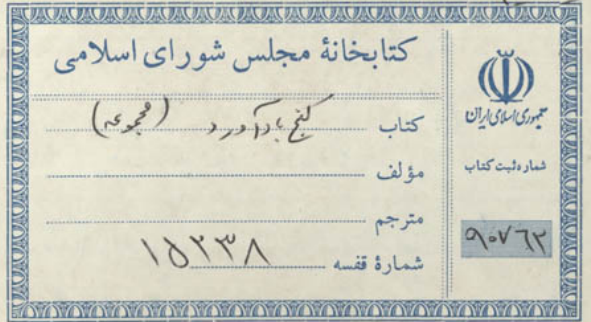 کتابخانهٔ مجلس شورای اسلامی
کتاب گنج بادآورد (مجموعه)
مؤلف
مترجم
شمارهٔ قفسه ۱۵۲۳۸
جمهوری اسلامی ایران
شماره ثبت کتاب
۹۰۷۶۲